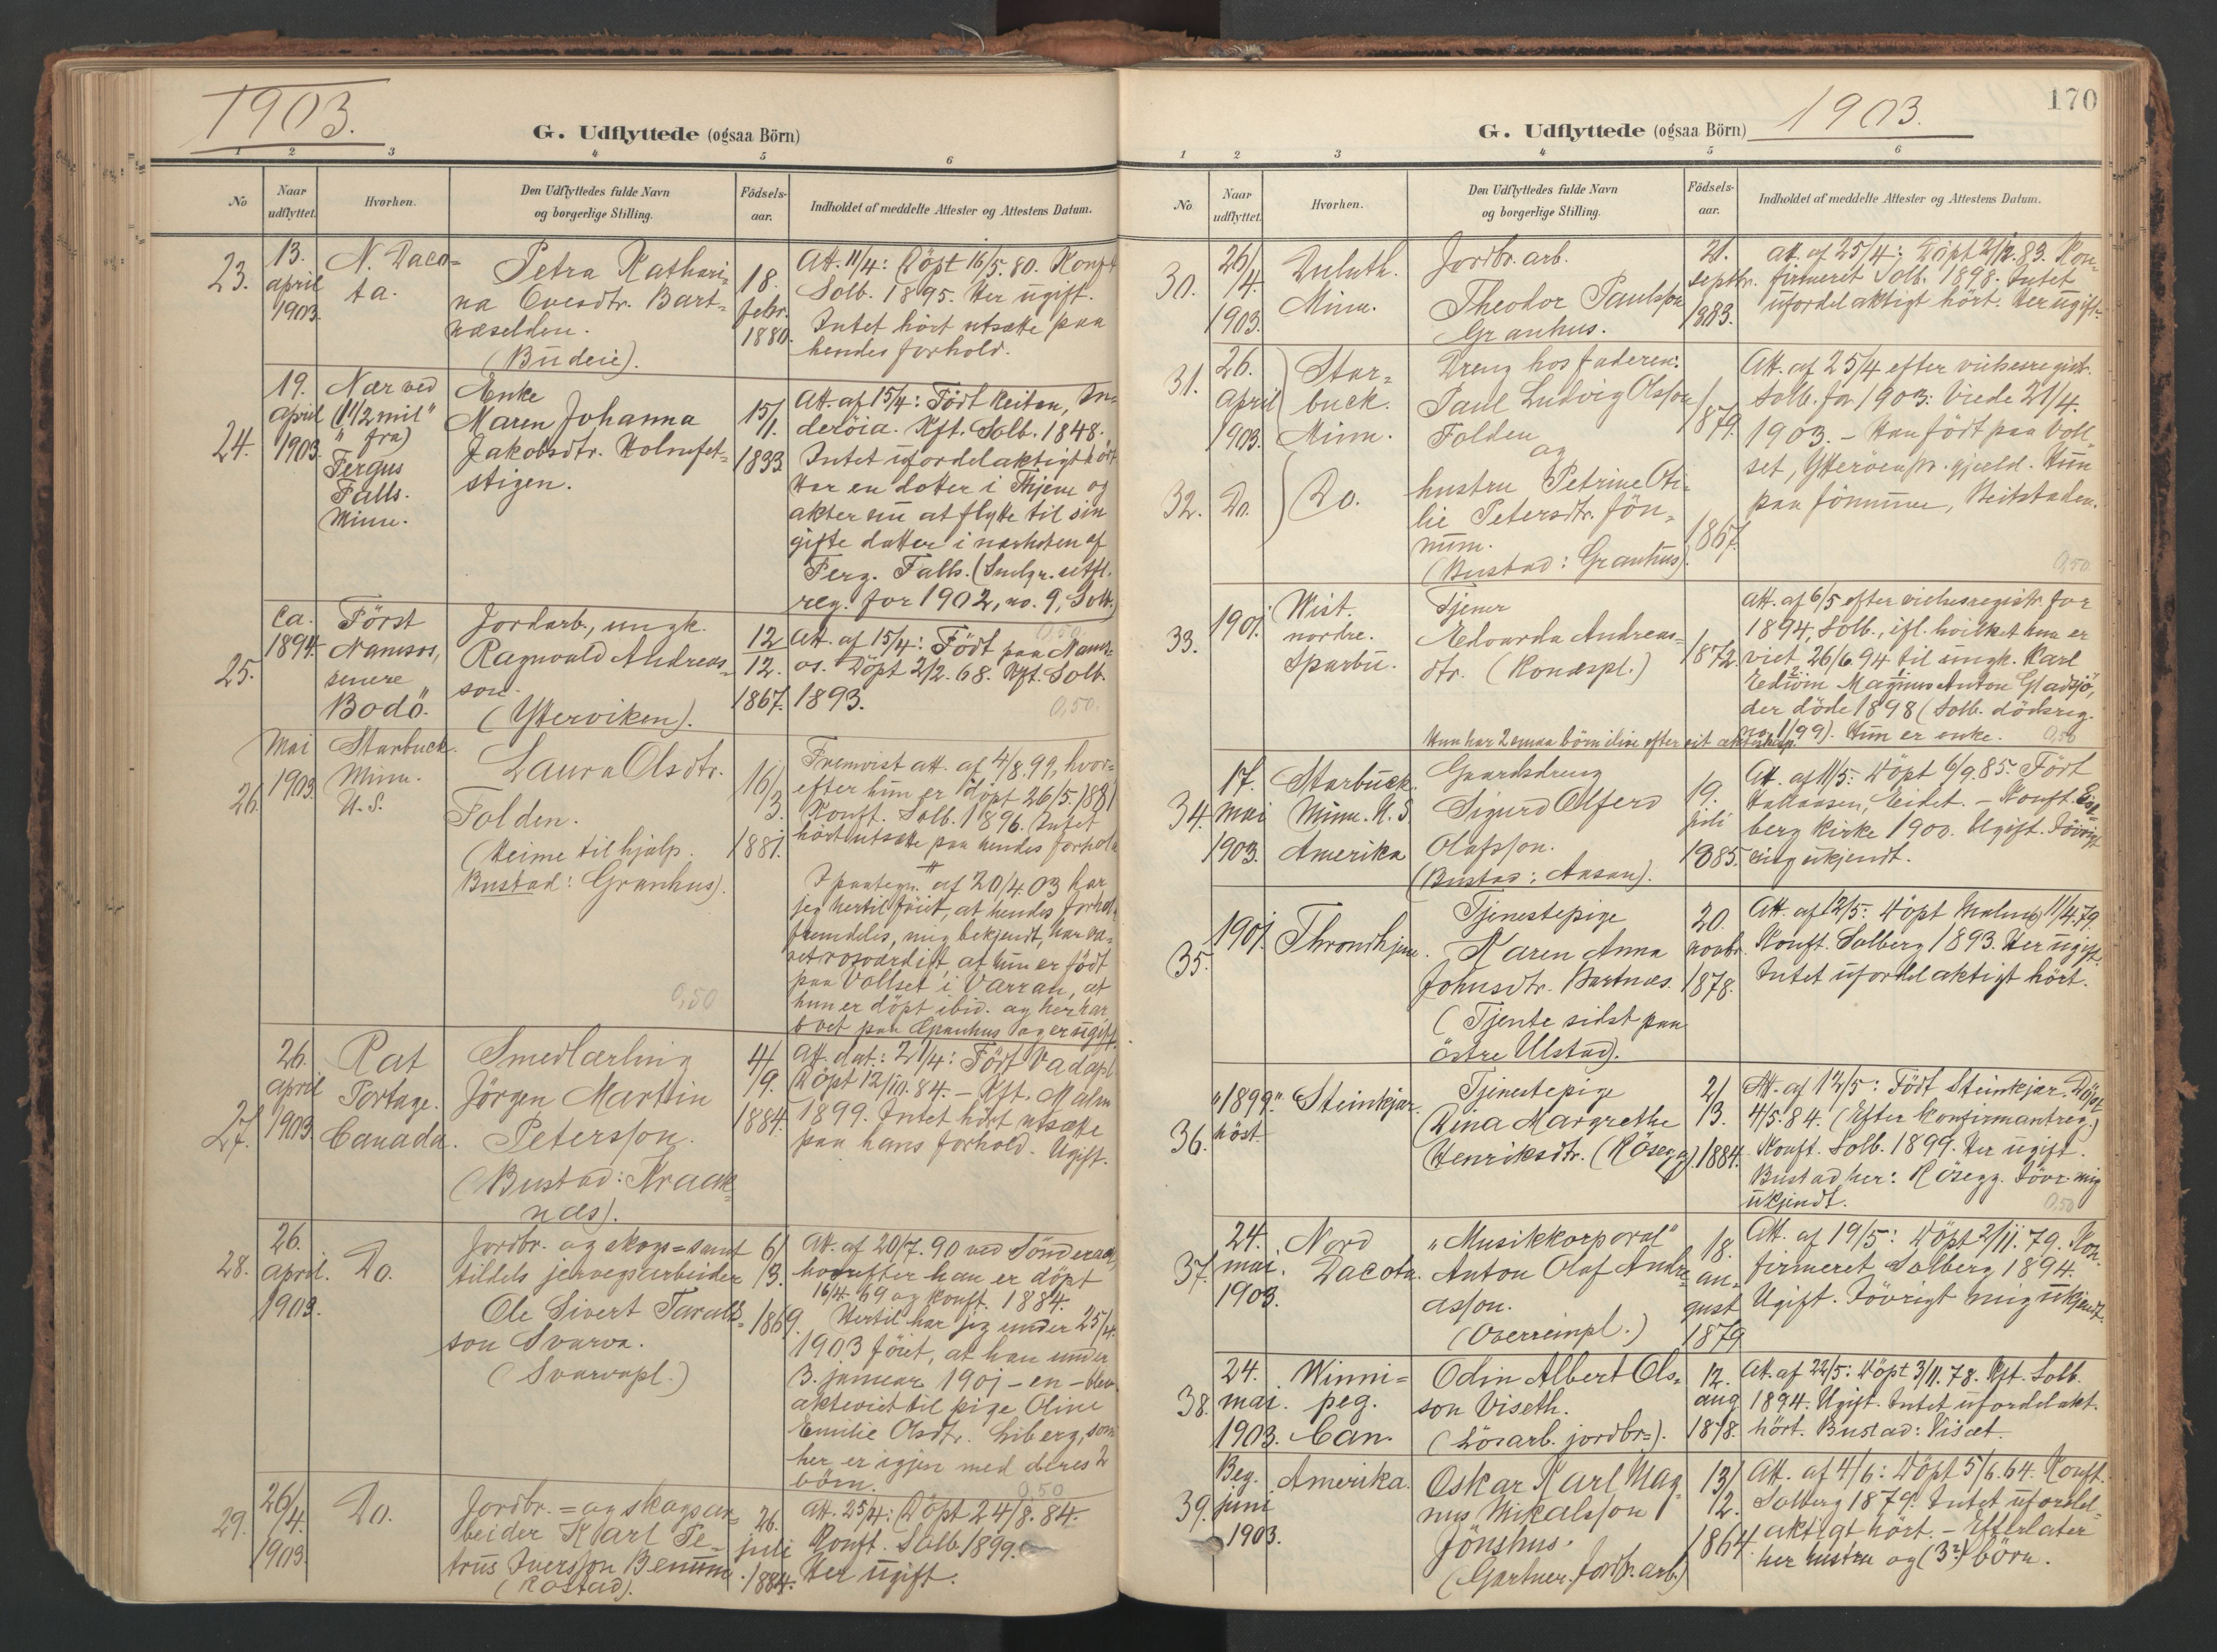 1903.
G. Udflyttede (ogsaa Börn)
1 2 3 4 5 6
No
Naar udflyttet.
Hvorhen.
Den Udflyttedes fulde Navn
og borgerlige Stilling.
Födsels-
aar.
Indholdet af meddelte Attester og Attestens Datum.
23.
13.
april
1903
N. Daco=
ta.
Petra Kathari=
na Ovesdtr. Bart=
næselden.
(Budeie).
18.
febr.
1880.
Att. 11/4: Döpt 16/5. 80. Konft
Solb. 1895. Her ugift.
Intet hört utsætte paa
hendes forhold.
24.
19.
april
1903
Nær ved
(1 1/2 mil"
" fra)
Fergus
Falls.
Minn.
Enke
Maren Johanna
Jakobsdtr. Holmfet=
stigen.
15/
1.
1833
Att. af 15/4: Födt Reitan, In=
deröia. Kft. Solb. 1848.
Intet ufordelaktigt hört
Har en dotter i Thjem og
akter nu at flytte til sin
gifte datter i nærheten af
Ferg. Falls. (
reg. for 1902, no. 9, Solb.)
0,50
25.
ca.
1894.
Först
Namsos,
senere
Bodö.
Jordarb., ungk.
Ragnvald Andreas=
son.
(Ytterviken).
12
12.
1867.
Att. af 15/4: Födt paa Nams=
os. Döpt 2/2. 68. Kft. Solb.
1893.
0,50.
26.
Mai
1903
Starbuck.
Minn.
U. S.
Laura Olsdtr.
Folden.
(Heime til hjælp.
Bustad: Granhus).
16/
3.
1881.
Fremvist att. af 4/8. 99, hvor=
efter hun er döpt 26/5. 1881
Konft. Solb. 1896. Intet
hört utsætte paa hendes forhold
I paategn. af 20/4 03 har
jeg hertil föiet, at hendes forhold
fremdeles, mig bekjendt, har væ=
ret rosværdigt, at hun er födt
paa Vollset i Varran, at
hun er döpt ibid. og her har
boet paa Granhus og er ugift.
0,50
27.
26.
april
1903
Rat
Portage.
Canada.
Smedlærling
Jörgen Martin
Petersson.
(Bustad: Kraak=
næs).
4/
9.
1884.
Att. dat: 21/4: Födt Vadapl
Döpt 12/10. 84. - Kft. Malm
1899. Intet hört utsætte
paa hans forhold. Ugift.
28.
26.
april.
1903.
Do.
Jordbr. og skogs= samt
tildels jervegsarbeider
Ole Sivert Taralds=
son Svarva.
(Svarvapl.)
6/
3.
1869.
Att. af 20/7. 90 ved Sönderaal,
hvorefter han er döpt
16/4. 69 og konft. 1884.
Hertil har jeg under 25/4.
1903 föiet, at han under
3. januar 1901 - en - blev
ekteviet til pige Oline
Emilie Olsdtr. Liberg, som
her er igjen med deres 2
börn.
0,50
29.
26/
4.
1903.
Do.
Jordbr. = og skogsar=
beider Karl Pe=
trus Iversson Benum.
(Rostad).
26.
juli
1884.
Att. 25/4: Döpt 24/8. 84.
Konft. Solb. 1899.
Her ugift.
170
1903.
G. Udflyttede (ogsaa Börn)
1 2 3 4 5 6
No
Naar udflyttet.
Hvorhen.
Den Udflyttedes fulde Navn
og borgerlige Stilling.
Födsels-
aar.
Indholdet af meddelte Attester og Attestens Datum.
30.
26/
4.
1903.
Duluth.
Minn.
Jordbr. arb.
Theodor Paulsson
Granhus.
21.
septbr.
1883.
Att. af 25/4: Döpt 2/12. 83. Kon=
firmeret Solb. 1898. Intet
ufordelaktigt hört. Her ugift.
31.
26.
april
1903.
Star=
buck.
Minn.
Dreng hos faderen:
Paul Ludvig Olsson
Folden
og
1879.
Att. af 25/4 efter vielsesregistr.
Solb. for 1903: Viede 21/4.
1903. - Han födt paa Voll=
set, Ytteröens pr.gjæld. Hun
paa Jönnum, Beitstaden.
32.
Do.
Do.
hustru Petrine Oti=
lie Petersdtr. Jön=
num.
(Bustad: Granhus).
1867.
0,50
33.
1901.
Wist.
nordre.
Sparbu.
Tjener
Edvarda Andreas=
dtr. (Konæspl.)
1872.
Att. af 6/5 efter vielsesregistr. for
1894, Solb., ifl. hvilket hun er
viet 26/6. 94 til ungk. Karl
Edvin Magnus Anton Gladsjö,
der döde 1898 (Solb. dödsreg.
no. 1/99). Hun er enke. 0,50
Hun har 2 smaa börn ilive efter sit
34.
17.
mai
1903.
Starbuck.
Minn. U. S.
Amerika
Gaardsdreng
Sigurd Alferd
Olafsson.
(Bustad: Aasan).
19.
juli
1885.
Att. af 11/5: Döpt 6/9. 85. Födt
Hallaasen, Eidet. - Konft. Eids=
berg kirke 1900. Ugift. Iövrigt
mig ukjendt.
35.
1901.
Throndhjem.
Tjenestepige
Karen Anna
Johnsdtr. Bartnæs.
(Tjente sidst paa
östre Ulstad).
20.
novbr.
1878.
Att. af 12/5: Döpt Malm 11/4. 79.
Konft. Solberg 1893. Her ugift.
Intet ufordelaktigt hört.
36.
"1899."
höst.
Steinkjær.
Tjenestepige
Dina Margrethe
Henriksdtr. (Rösegg).
2/
3.
1884.
Att. af 12/5: Födt Steinkjær. Döpt
4/5. 84. (Efter konfirmantreg.)
Konft. Solb. 1899. Her ugift.
Bustad her: Rösegg. Iövr. mig
ukjendt.
0,50
37.
24.
mai.
1903.
Nord
Dacota.
"Musikkorporal"
Anton Olaf Andre=
asson.
(Overreinpl.)
18.
au=
gust
1879
Att. af 19/5: Döpt 2/11. 79. Kon=
firmeret Solberg 1894.
Ugift. Iövrigt mig ukjendt.
38.
24.
mai.
1903.
Winni=
peg.
Can.
Odin Albert Ols=
son Viseth.
(Lösarb. jordbr=).
12.
aug
1878.
Att. af 22/5: Döpt 3/11. 78. Kft. Solb.
1894. Ugift. Intet ufordelakt.
hört. Bustad: Viset.
39.
Beg.
juni
1903.
Amerika.
Oskar Karl Mag=
nus Mikalsson
Jönshus.
(Gartner. Jordbr. arb.)
13/
12.
1864.
Att. af 4/6: Döpt 5/6. 64. Konft.
Solberg 1879. Intet ufordel=
aktigt hört. - Efterlater
her hustru og (3?) börn.